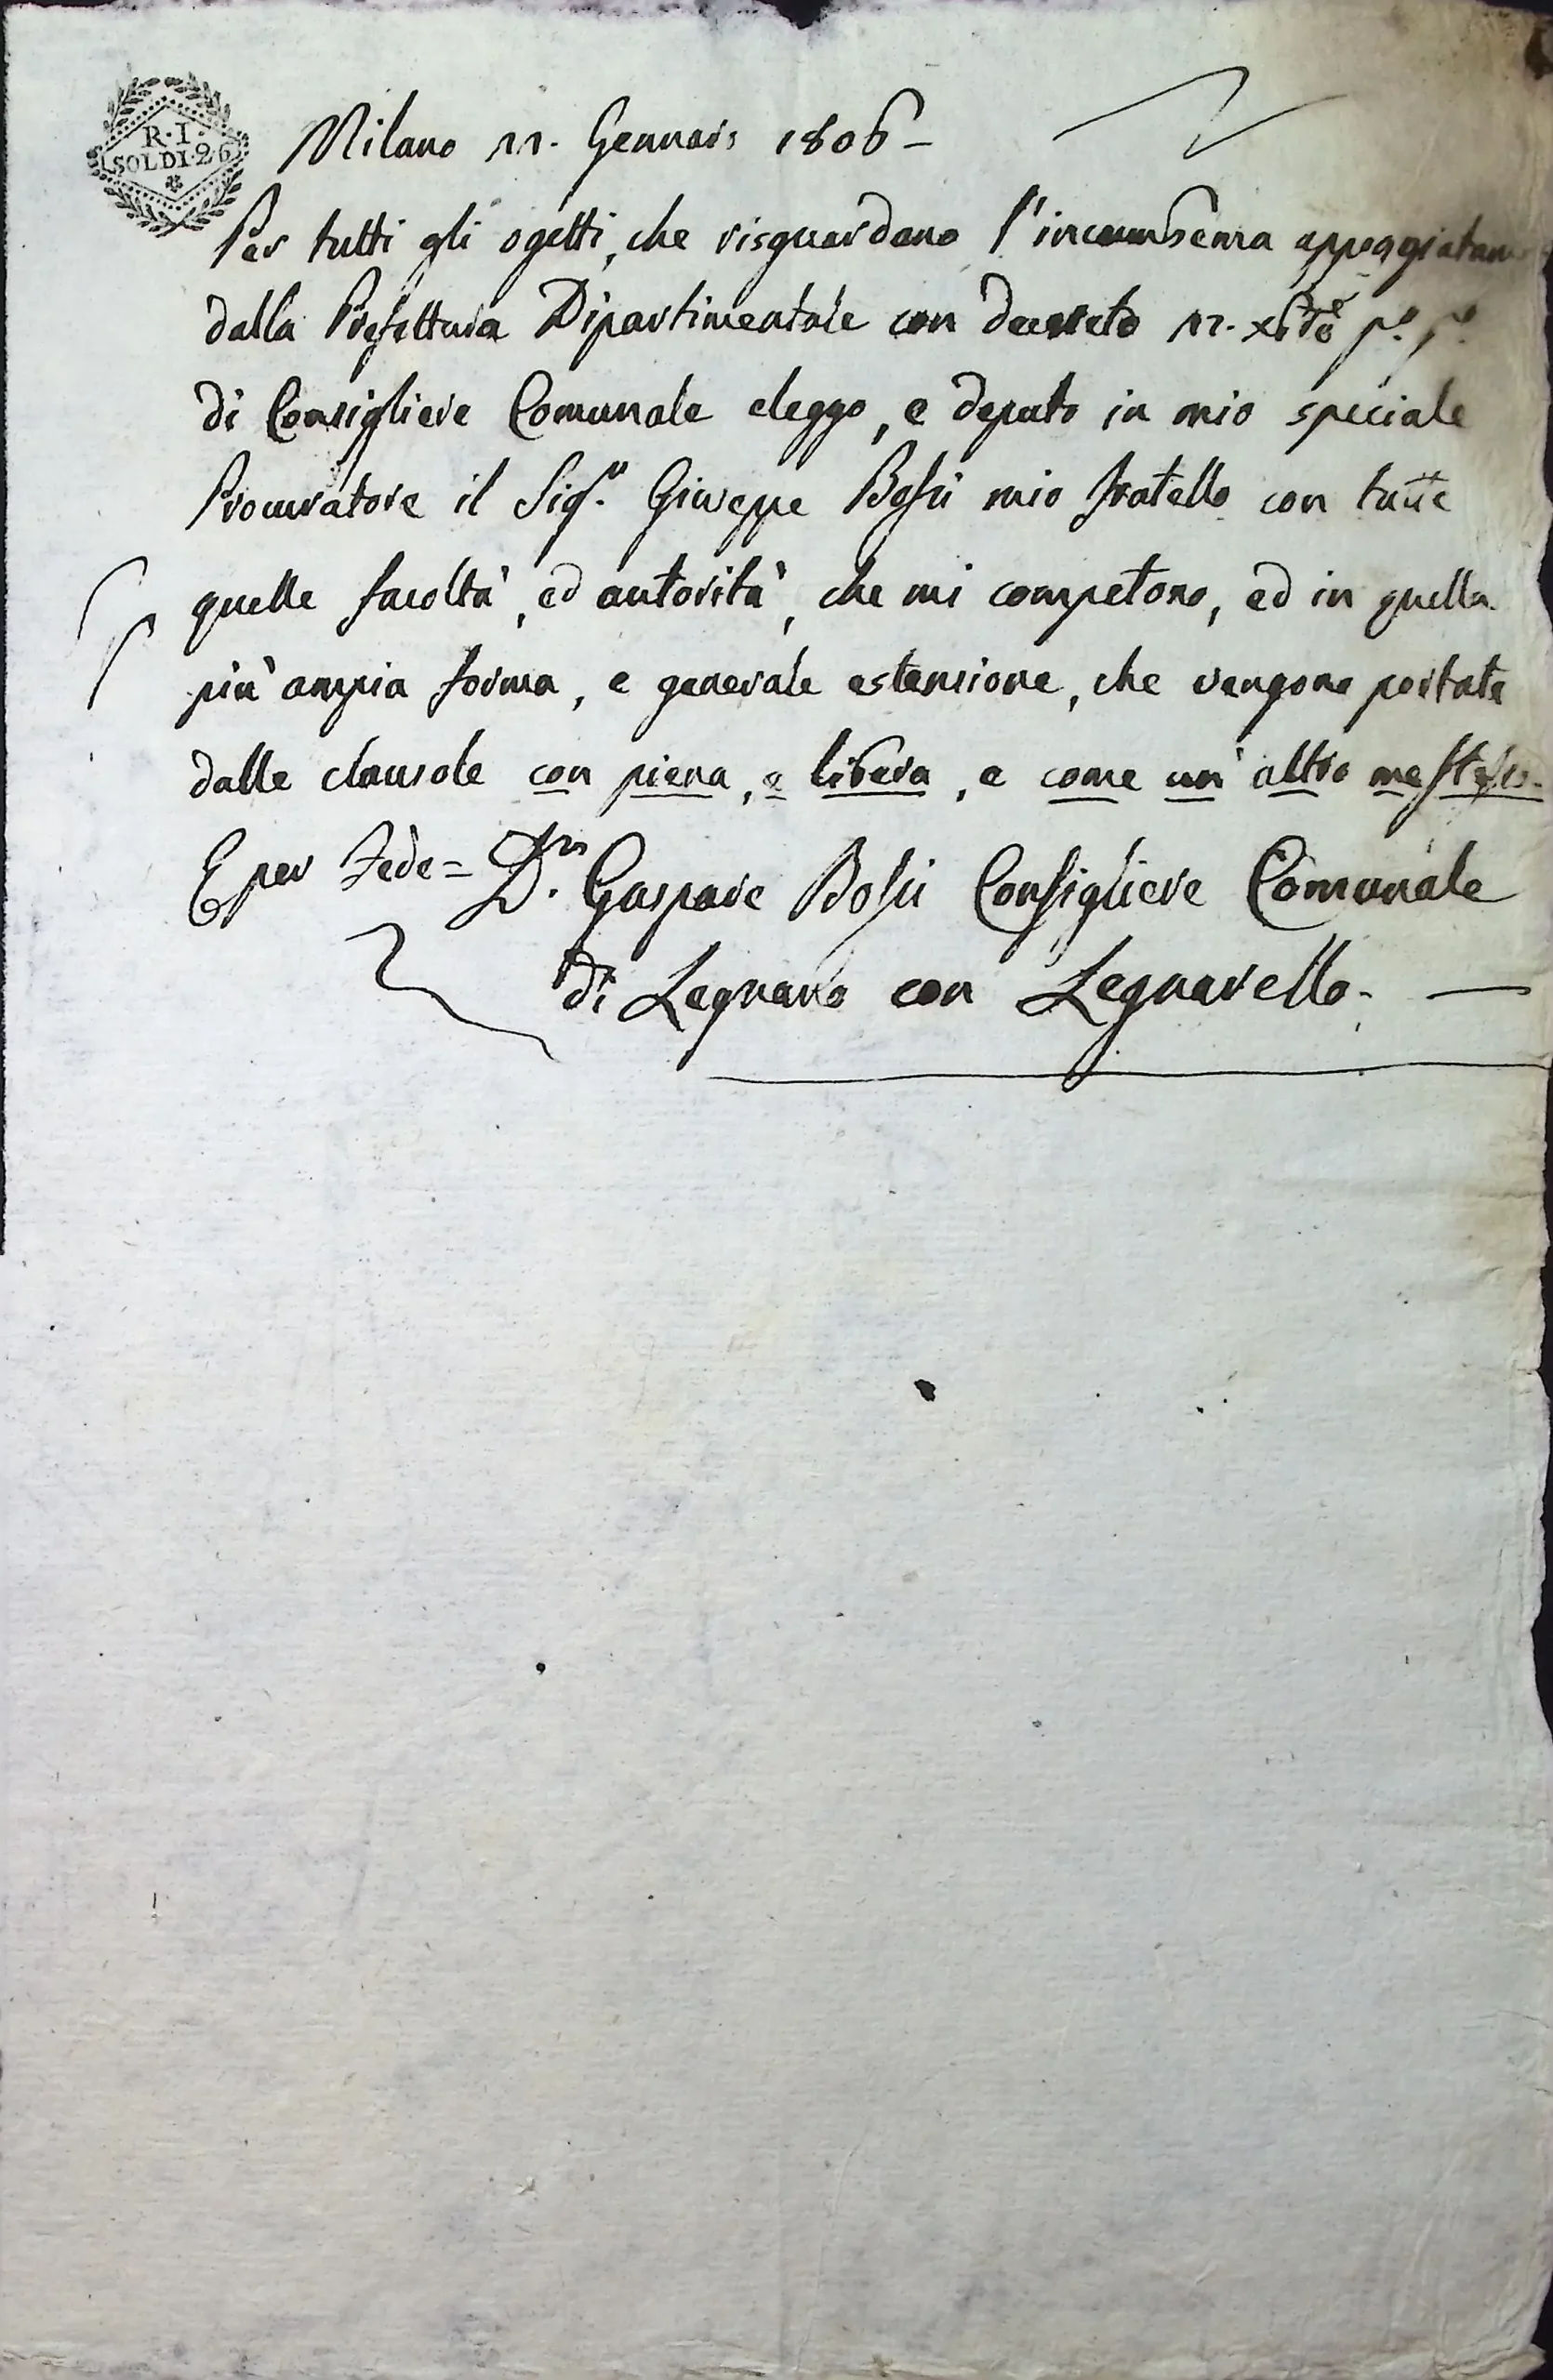 R. I.
SOLDI. 26
Milano 11. Gennaio 1806 -
Per tutti gli ogetti, che risguardano l'incumbenza appoggiatami
dalla Prefettura Dipartimentale con decreto p.º p.º
di Consigliere Comunale eleggo, e deputo in mio speciale
Procuratore il Sig.r Giuseppe Bossi mio fratello con tutte
quelle facoltà, ed autorità, che mi competono, ed in quella
più ampia forma, e generale estensione, che vengono portate
dalle clausole con piena, e libera, e come un' altro me stesso.
E per Fede = D.r Gaspare Bossi Consigliere Comunale
di Legnano con Legnarello. —